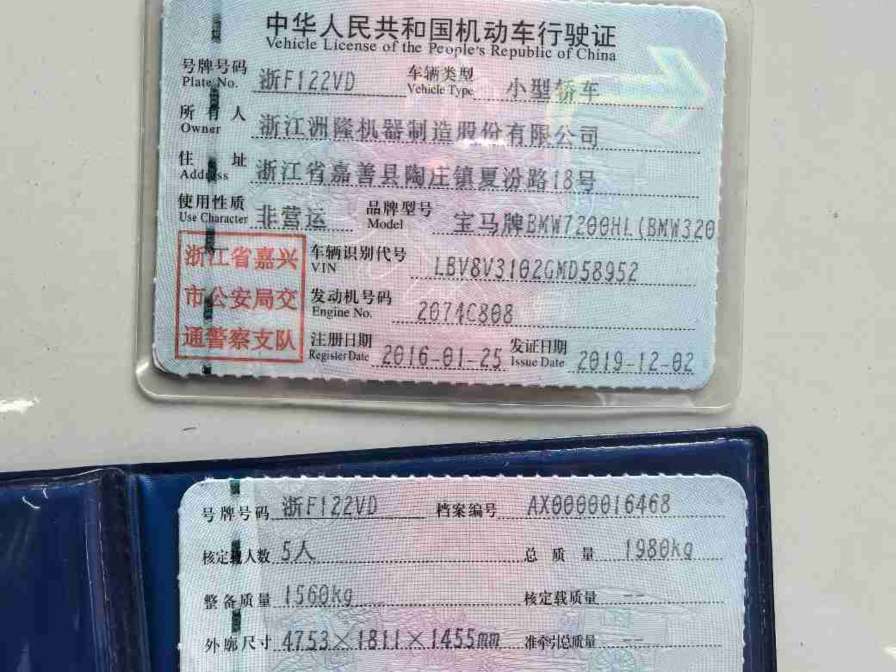 中华人民共和国机动车行驶证
Vehicle License of the People's Republic of China
号牌号码 浙F122VD 车辆类型 小型轿车
Plate No. Vehicle Type
所有人 浙江洲隆机器制造股份有限公司
Owner
住址 浙江省嘉善县陶庄镇夏汾路18号
Address
使用性质 非营运 品牌型号 宝马牌BMW7200HL(BMW320
Use Character Model
浙江省嘉兴
市公安局交
通警察支队
车辆识别代号 LBV8V3102GMD58952
VIN
发动机号码 2074C808
Engine No.
注册日期 2016-01-25 发证日期 2019-12-02
Register Date Issue Date
号牌号码 浙F122VD 档案编号 AX0000016468
核定载人数 5人 总质量 1980kg
整备质量 1560kg 核定载质量 --
外廓尺寸 4753×1811×1455mm 准牵引总质量 --